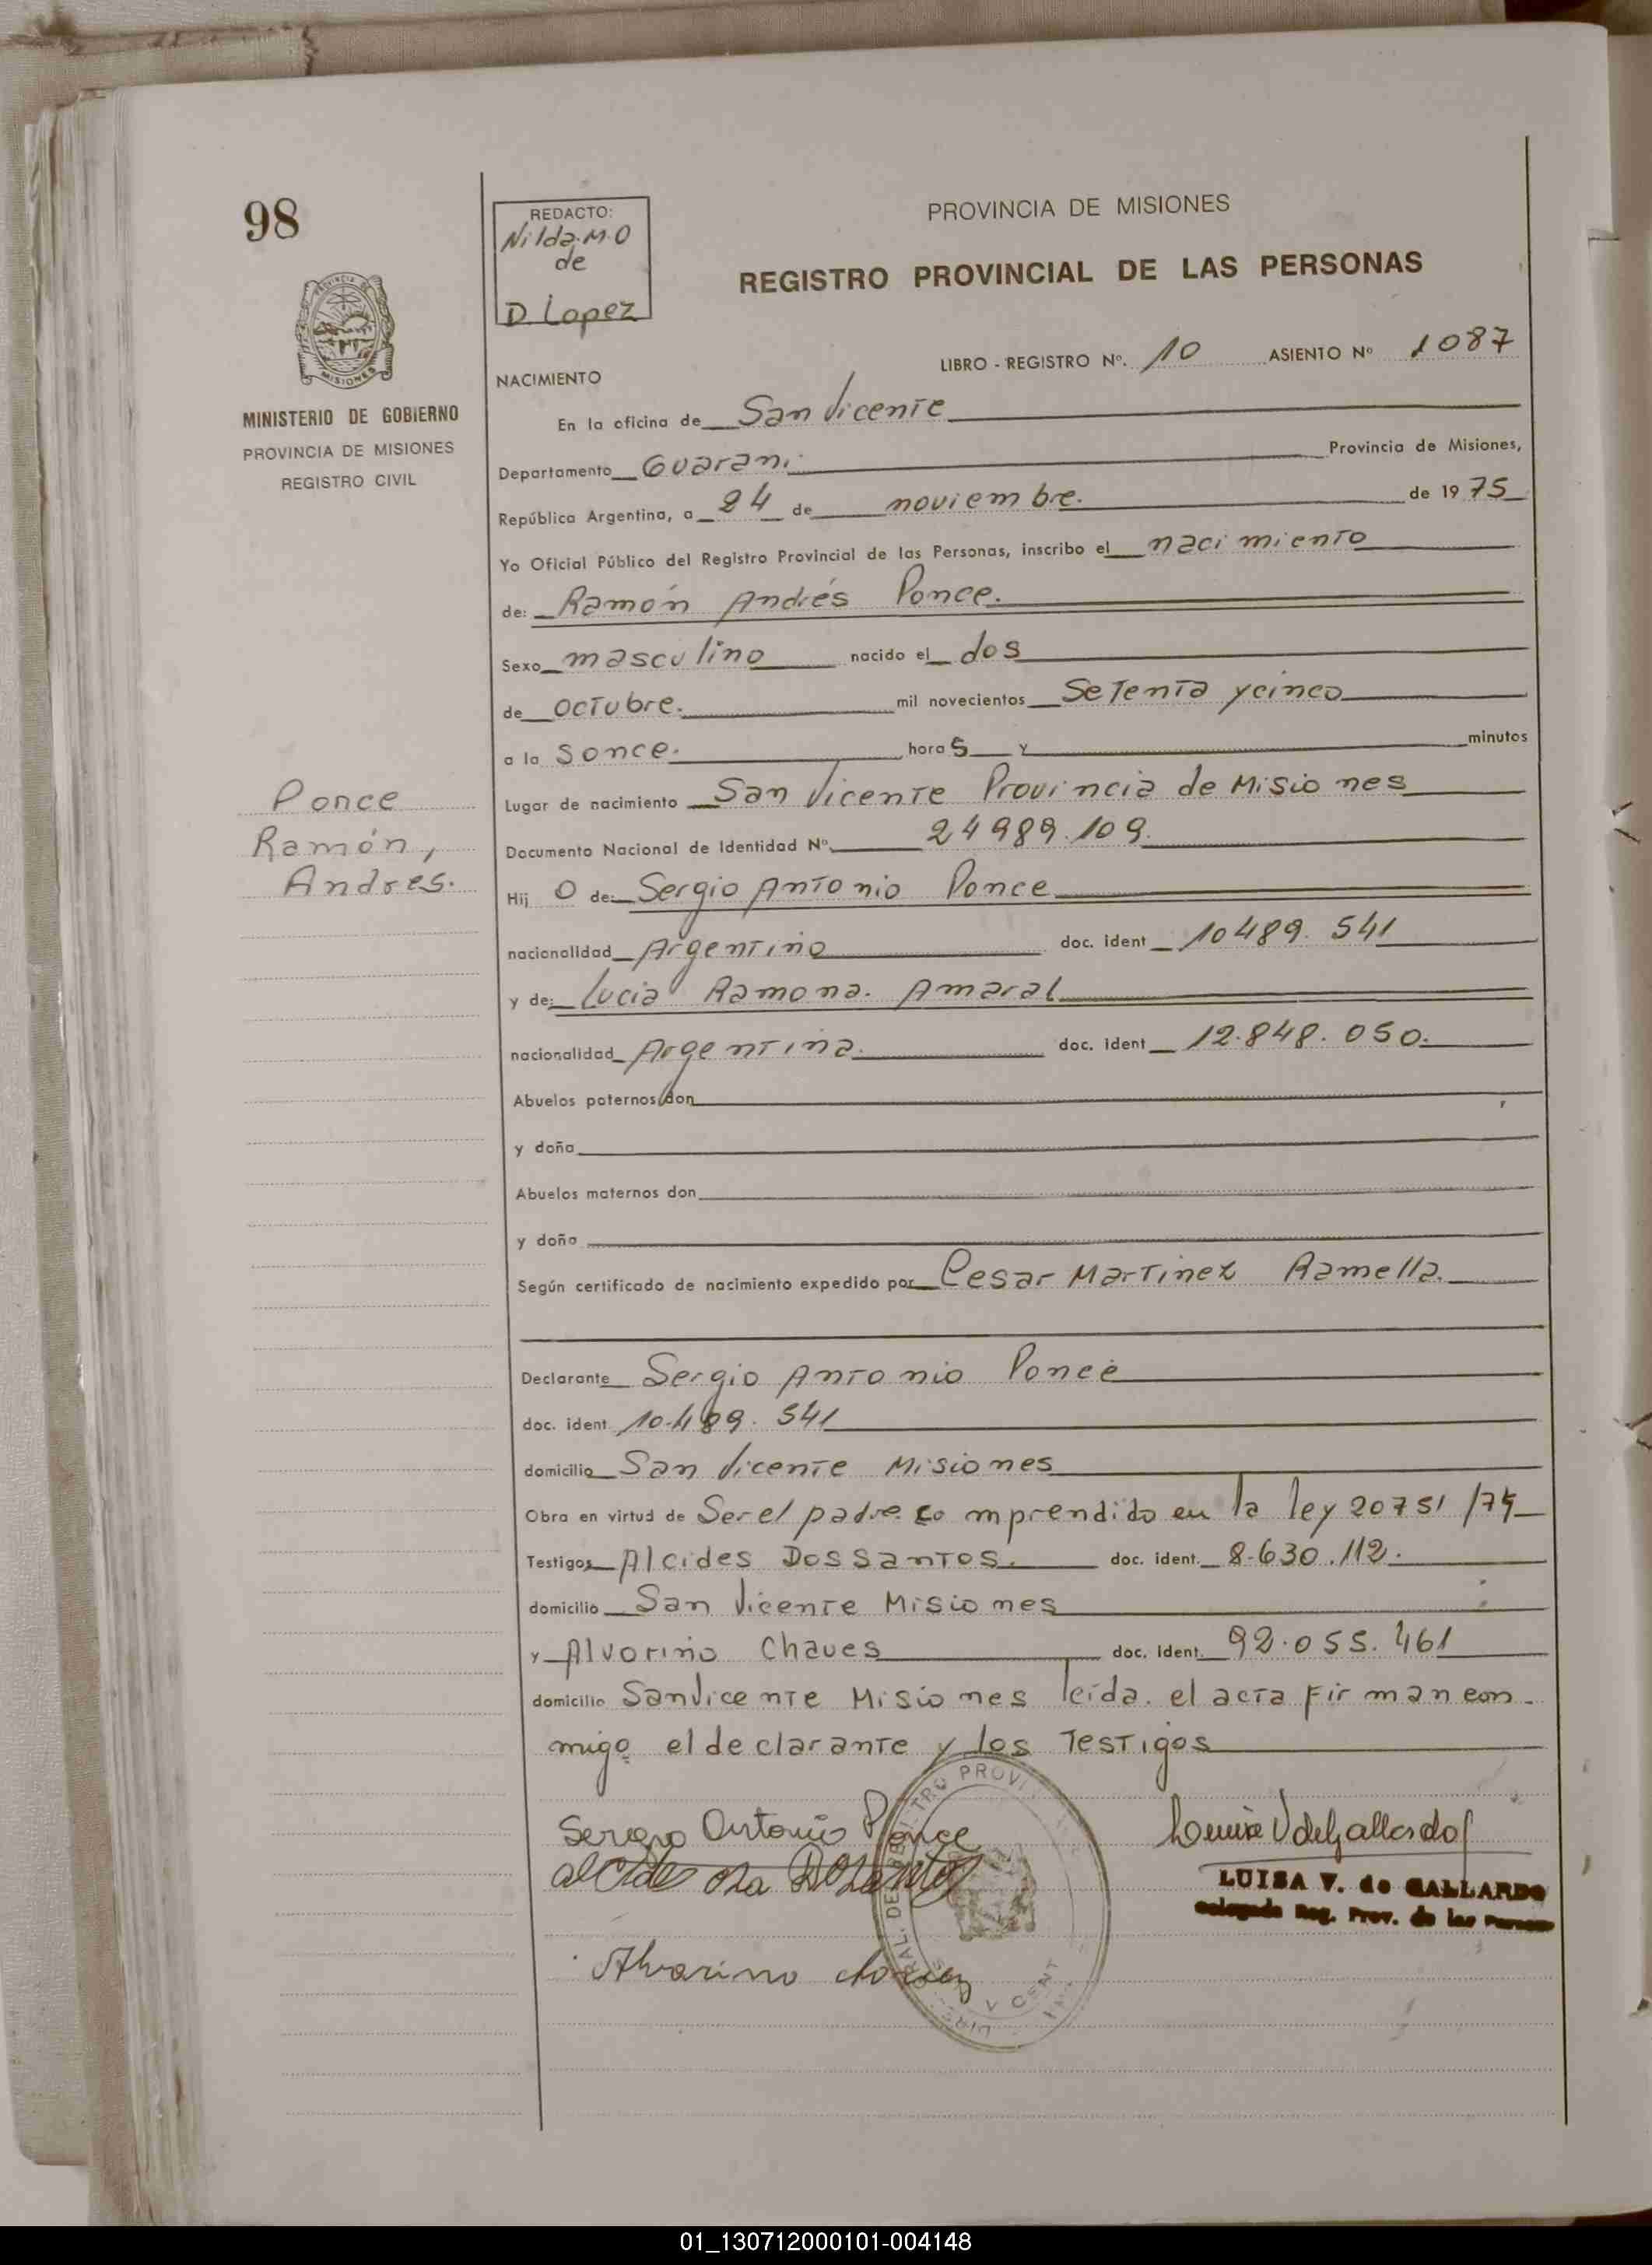 98
REDACTO:
Nilda. M. O
de
D. Lopez
PROVINCIA DE MISIONES
REGISTRO PROVINCIAL DE LAS PERSONAS
MINISTERIO DE GOBIERNO
PROVINCIA DE MISIONES
REGISTRO CIVIL
LIBRO - REGISTRO Nº. 10 ASIENTO Nº 1087
NACIMIENTO
En la oficina de San Vicente
Departamento Guarani Provincia de Misiones,
República Argentina, a 24 de noviembre. de 19 75
Yo Oficial Público del Registro Provincial de las Personas, inscribo el nacimiento
de: Ramón Andrés Ponce.
Sexo masculino nacido el dos
de octubre. mil novecientos Setenta ycinco
a la s once. hora s y minutos
Ponce
Ramón,
Andres.
Lugar de nacimiento San Vicente Provincia de Misiones
Documento Nacional de Identidad Nº 24989.109.
Hij o de: Sergio Antonio Ponce
nacionalidad Argentino doc. ident 10489. 541
y de: Lucia Ramona. Amaral
nacionalidad Argentina. doc. ident 12.848.050.
Abuelos paternos don
y doña
Abuelos maternos don
y doña
Según certificado de nacimiento expedido por Cesar Martinez Ramella.
Declarante Sergio Antonio Ponce
doc. ident. 10.489. 541
domicilio San Vicente Misiones
Obra en virtud de Ser el padre comprendido en la ley 20751 /74
Testigos Alcides Dos Santos. doc. ident. 8.630.112.
domicilio San Vicente Misiones
y Alvorino Chaves doc. ident. 92.055.461
domicilio San Vicente Misiones leída. el acta firman con-
migo el declarante y los Testigos
Sergio Antonio Ponce
Luisa V de Gallardo
LUISA V. de GALLARDO
Delegada Reg. Prov. de las Personas
Alvarino
01_130712000101-004148